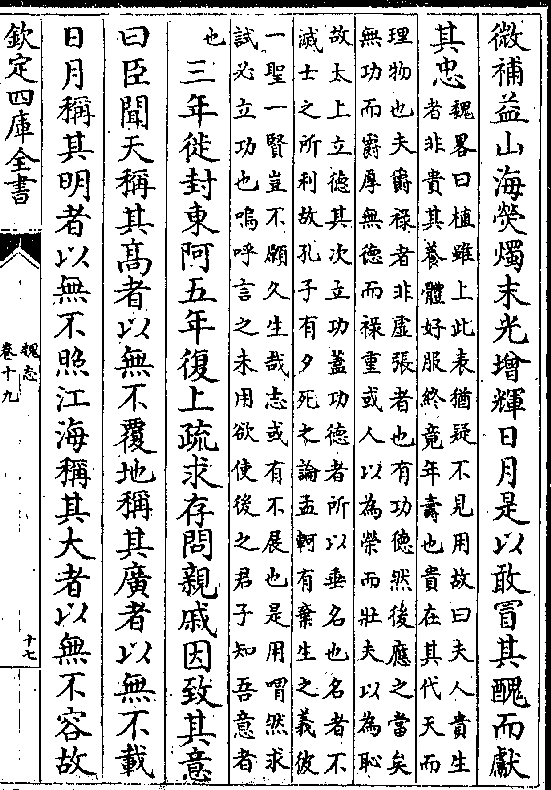 微補益山海熒燭末光增輝日月是以敢冒其醜而獻
其忠
魏畧曰植雖上此表猶疑不見用故曰夫人貴生
者非貴其養體好服終竟年壽也貴在其代天而
理物也夫爵祿者非虛張者也有功德然後應之當矣
無功而爵厚無德而祿重或人以為榮而壯夫以為恥
故太上立德其次立功蓋功德者所以垂名也名者不
滅士之所利故孔子有夕死之論孟軻有棄生之義彼
一聖一賢豈不願久生哉志或有不展也是用喟然求
試必立功也嗚呼言之未用欲使後之君子知吾意者
也
三年徙封東阿五年復上疏求存問親戚因致其意
曰臣聞天稱其高者以無不覆地稱其廣者以無不載
日月稱其明者以無不照江海稱其大者以無不容故
欽定四庫全書
魏志
卷十九
十七